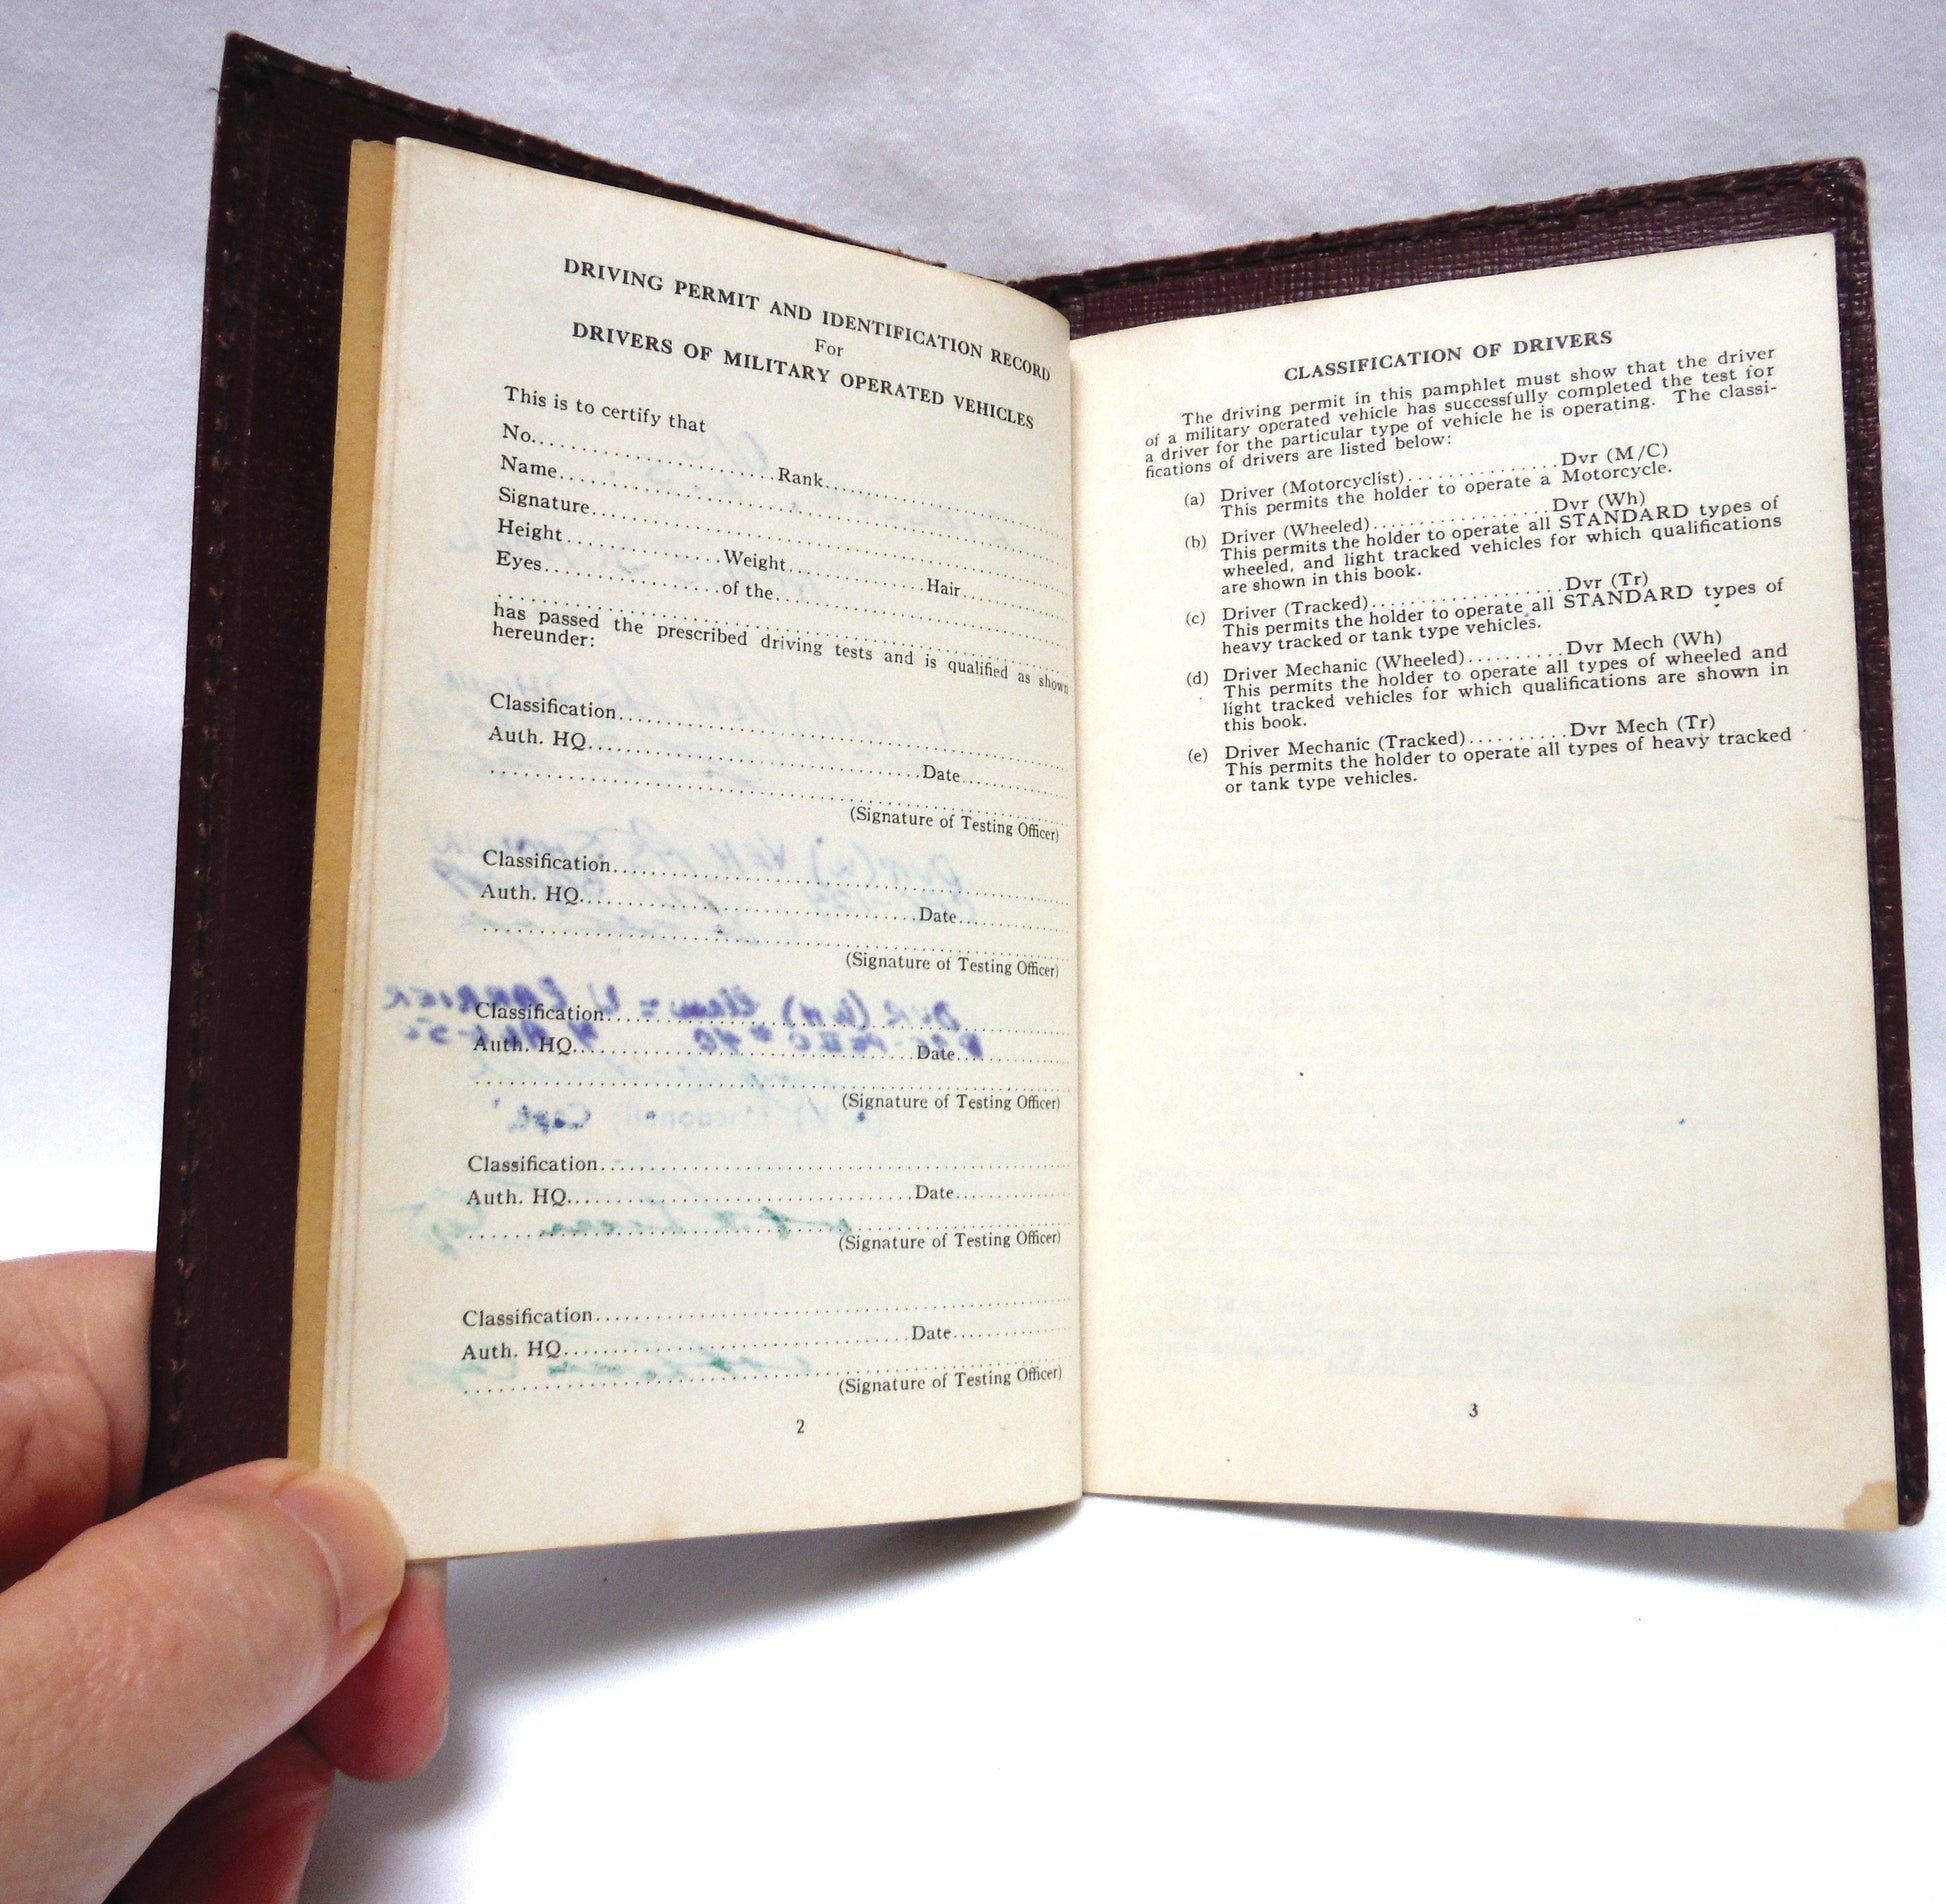 DRIVING PERMIT AND IDENTIFICATION RECORD
For
DRIVERS OF MILITARY OPERATED VEHICLES
This is to certify that
No. Rank
Name
Signature
Height Weight Hair
Eyes of the
has passed the prescribed driving tests and is qualified as shown
hereunder:
Classification
Auth. HQ Date
(Signature of Testing Officer)
Classification
Auth. HQ Date
(Signature of Testing Officer)
Classification
Auth. HQ Date
(Signature of Testing Officer)
Classification
Auth. HQ Date
(Signature of Testing Officer)
Classification
Auth. HQ Date
(Signature of Testing Officer)
2
CLASSIFICATION OF DRIVERS
The driving permit in this pamphlet must show that the driver
of a military operated vehicle has successfully completed the test for
a driver for the particular type of vehicle he is operating. The classi-
fications of drivers are listed below:
(a) Driver (Motorcyclist) Dvr (M/C)
This permits the holder to operate a Motorcycle.
(b) Driver (Wheeled) Dvr (Wh)
This permits the holder to operate all STANDARD types of
wheeled, and light tracked vehicles for which qualifications
are shown in this book.
(c) Driver (Tracked) Dvr (Tr)
This permits the holder to operate all STANDARD types of
heavy tracked or tank type vehicles.
(d) Driver Mechanic (Wheeled) Dvr Mech (Wh)
This permits the holder to operate all types of wheeled and
light tracked vehicles for which qualifications are shown in
this book.
(e) Driver Mechanic (Tracked) Dvr Mech (Tr)
This permits the holder to operate all types of heavy tracked
or tank type vehicles.
3